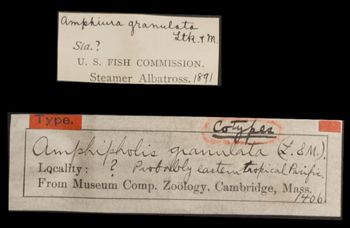 Amphiura granulata
Ltk. & M.
Sta.?
U. S. FISH COMMISSION.
Steamer Albatross. 1891
Type.
Cotypes
Amphipholis granulata (L. & M.).
Locality: ? Probably eastern tropical Pacific.
From Museum Comp. Zoology, Cambridge, Mass.
1406.